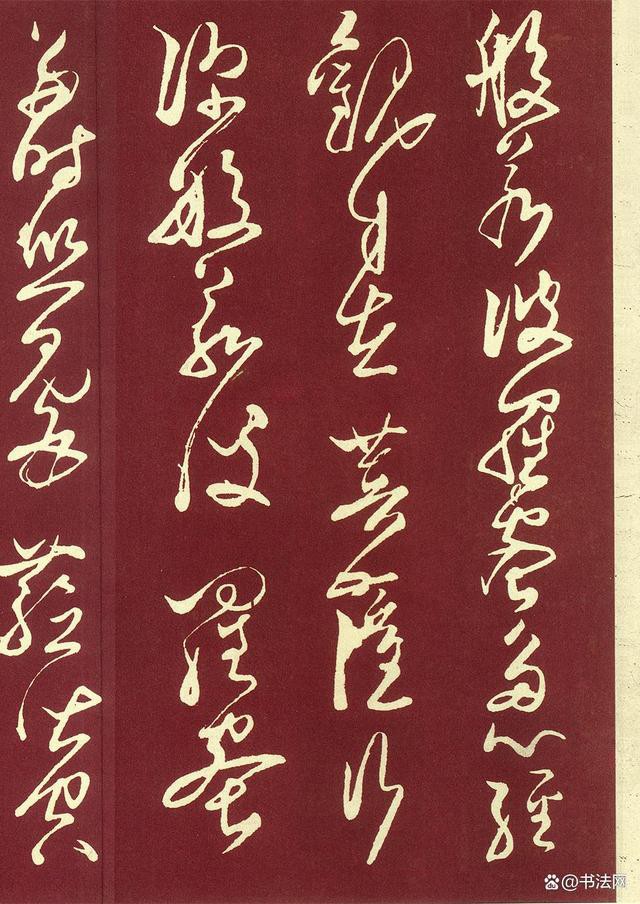 般若波羅蜜多心經
觀自在菩薩行
深般若波羅蜜
多時照見五蘊皆空
@书法网